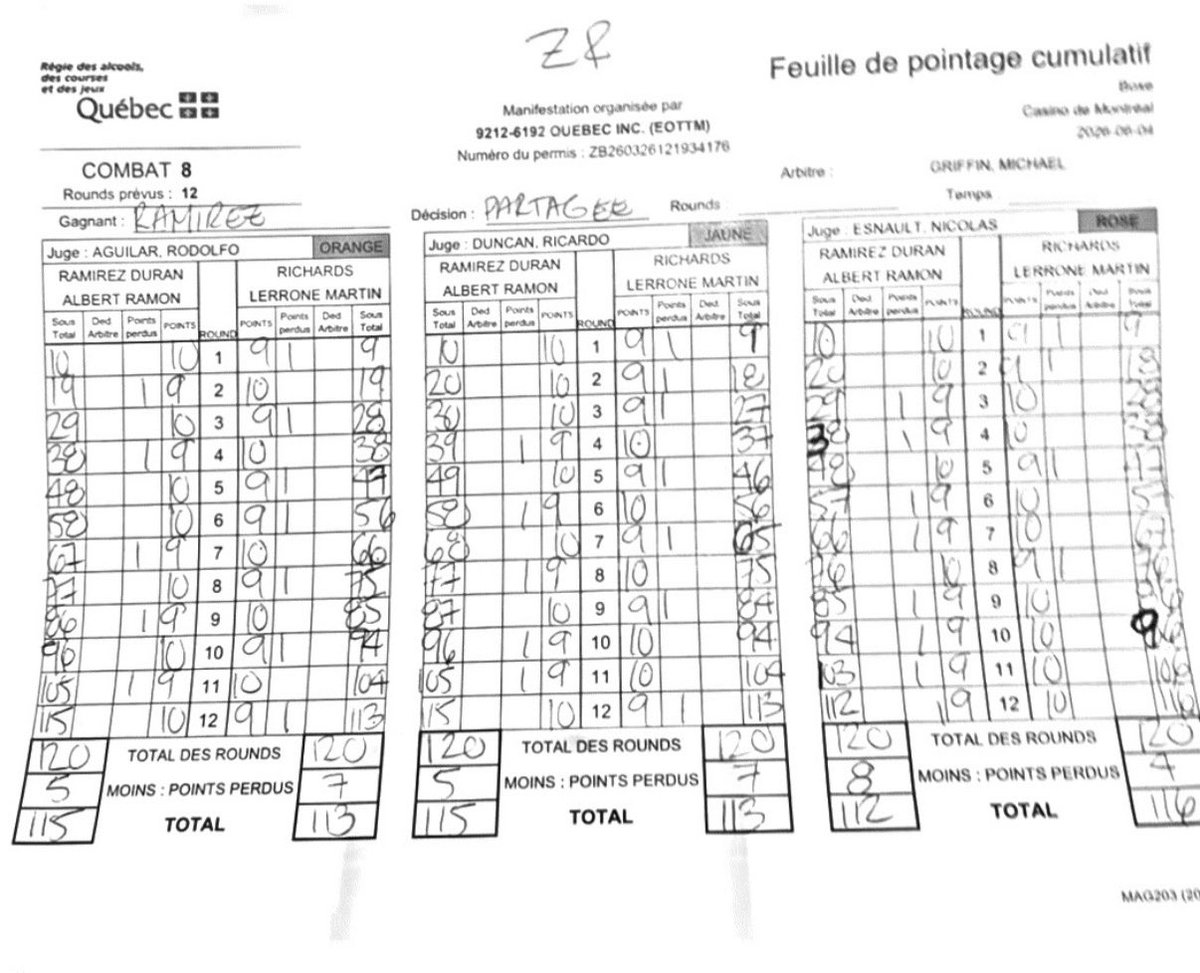 Z R
Régie des alcools,
des courses
et des jeux
Québec
Feuille de pointage cumulatif
Boxe
Casino de Montréal
2026-06-04
Manifestation organisée par
9212-6192 QUEBEC INC. (EOTTM)
Numéro du permis : ZB260326121934176
COMBAT 8
Rounds prévus : 12
Arbitre : GRIFFIN, MICHAEL
Gagnant : RAMIREZ
Décision : PARTAGEE Rounds Temps
Juge : AGUILAR, RODOLFO ORANGE
RAMIREZ DURAN ALBERT RAMON
RICHARDS LERRONE MARTIN
Sous Total Ded Arbitre Points perdus POINTS ROUND POINTS Points perdus Ded Arbitre Sous Total
10 10 1 9 1 9
19 1 9 2 10 19
29 10 3 9 1 28
38 1 9 4 10 38
48 10 5 9 1 47
58 10 6 9 1 56
67 1 9 7 10 66
77 10 8 9 1 75
86 1 9 9 10 85
96 10 10 9 1 94
105 1 9 11 10 104
115 10 12 9 1 113
120 TOTAL DES ROUNDS 120
5 MOINS : POINTS PERDUS 7
115 TOTAL 113
Juge : DUNCAN, RICARDO JAUNE
RAMIREZ DURAN ALBERT RAMON
RICHARDS LERRONE MARTIN
Sous Total Ded Arbitre Points perdus POINTS ROUND POINTS Points perdus Ded Arbitre Sous Total
10 10 1 9 1 9
20 10 2 9 1 18
30 10 3 9 1 27
39 1 9 4 10 37
49 10 5 9 1 46
58 1 9 6 10 56
68 10 7 9 1 65
77 1 9 8 10 75
87 10 9 9 1 84
96 1 9 10 10 94
105 1 9 11 10 104
115 10 12 9 1 113
120 TOTAL DES ROUNDS 120
5 MOINS : POINTS PERDUS 7
115 TOTAL 113
Juge : ESNAULT, NICOLAS ROSE
RAMIREZ DURAN ALBERT RAMON
RICHARDS LERRONE MARTIN
Sous Total Ded Arbitre Points perdus POINTS ROUND POINTS Points perdus Ded Arbitre Sous Total
10 10 1 9 1 9
20 10 2 9 1 18
29 1 9 3 10 28
38 1 9 4 10
48 10 5 9 1
57 1 9 6 10
66 1 9 7 10
76 10 8 9 1
85 1 9 9 10
94 1 9 10 10 96
103 1 9 11 10 106
112 1 9 12 10 116
120 TOTAL DES ROUNDS 120
8 MOINS : POINTS PERDUS 4
112 TOTAL 116
MAG203 (20